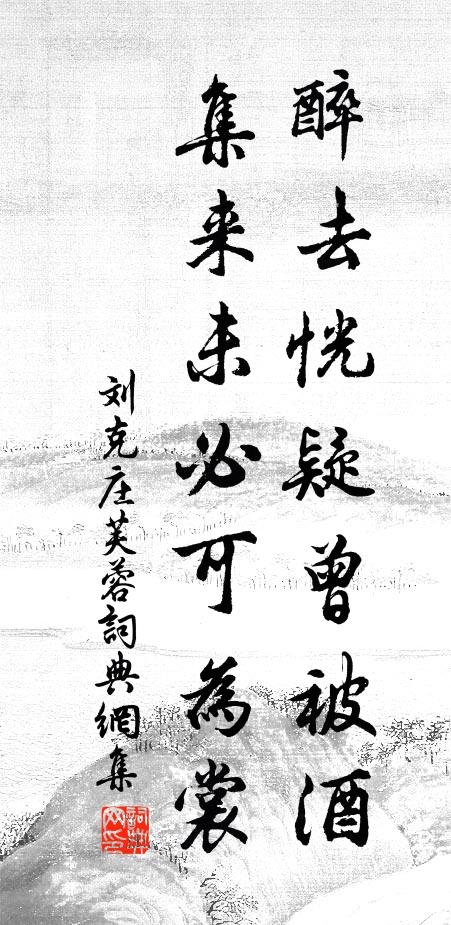 醉去恍疑曾被酒
集来未必可為裳
刘克庄芙蓉詞典網集